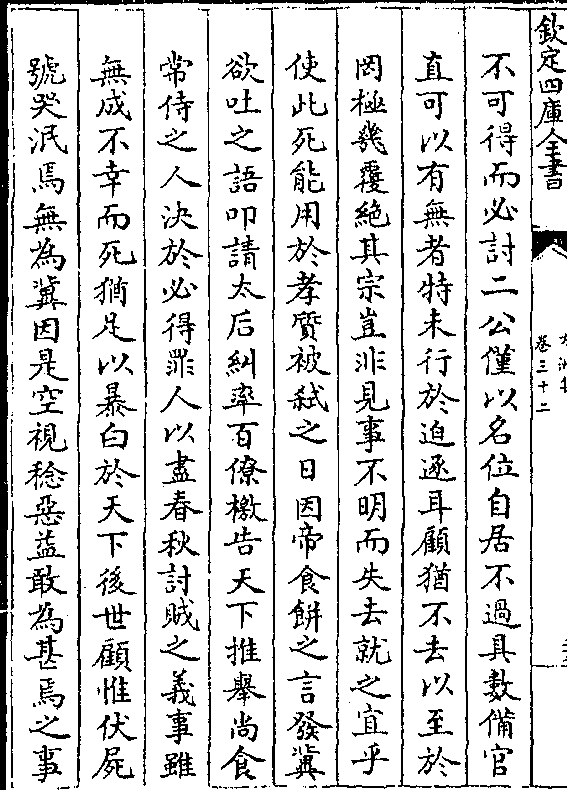 欽定四庫全書
卷三十二
不可得而必討二公僅以名位自居不過具數備官
直可以有無者特未行於迫逐耳顧猶不去以至於
罔極幾覆絕其宗豈非見事不明而失去就之宜乎
使此死能用於孝質被弑之日因帝食餅之言發冀
欲吐之語叩請太后糾率百僚檄告天下推舉尚食
常侍之人決於必得罪人以盡春秋討賊之義事雖
無成不幸而死猶足以暴白於天下後世顧惟伏屍
號哭泯焉無為冀因是空視稔惡益敢為甚焉之事